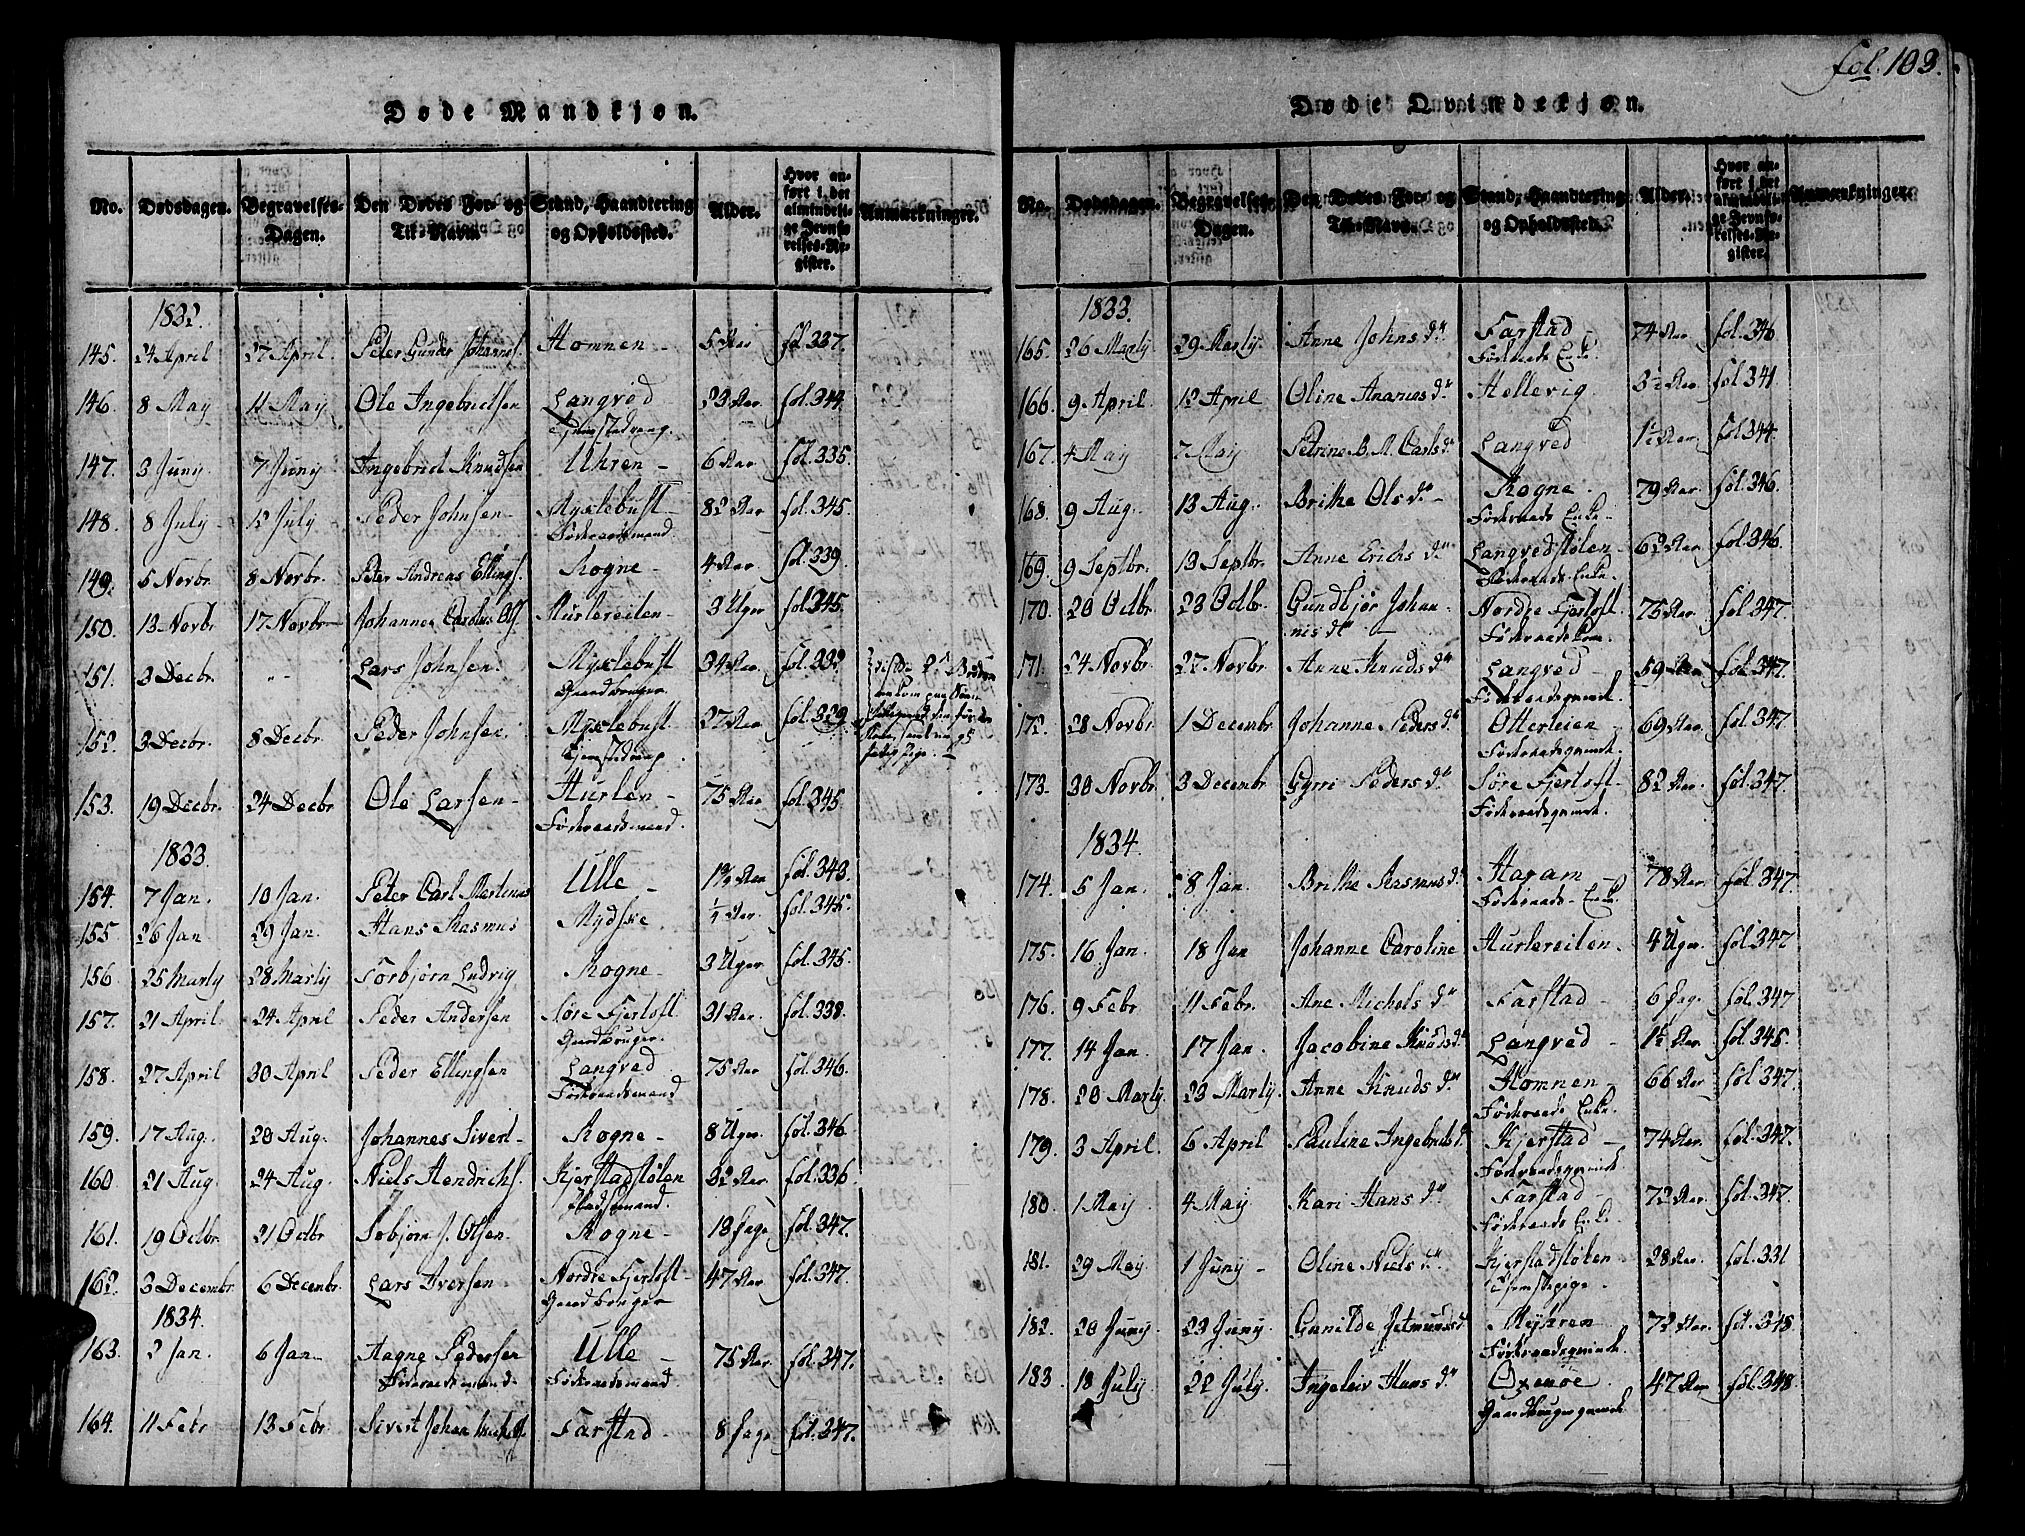 fol. 103.
Døde Mandkjøn.
No. Dødsdagen. Begravelses-Dagen. Den Dødes For- og Til-Navn. Stand, Haandtering og Opholdssted. Alder. Hvor anført i det almindelige Jevnførelses-Register. Anmærkninger.
1832.
145. 24 April 27 April Peter Gunder Johannes. Homnen - 5 Aar fol. 337.
146. 8 May 11 May Ole Ingebrictsen Langved 23 Aar fol. 344.
147. 3 Juny 7 Juny Ingebrict Knudsen Uhren - 6 Aar fol. 335.
148. 8 July - 12 July Peder Johnsen - Myklebust - 82 Aar fol. 345.
Føderaadsmand.
149. 5 Novbr 8 Novbr. Peter Andreas Ellings. Rogne - 4 Aar fol. 339.
150. 13 Novbr 17 Novbr Johannes Carolus Ols. Hurlereiten - 3 Uger fol. 345.
151. 3 Decbr. " - Lars Johnsen. Myklebust 34 Aar fol. 332
Gaardbruger
152. 3 Decbr. 8 Decbr. Peder Johnsen. Myklebust. 27 Aar fol. 329
153. 19 Decbr. 24 Decbr Ole Larsen - Hurlen - 75 Aar fol. 345
Føderaadsmand.
1833.
154. 7 Jan. 10 Jan. Peter Carl Martinus Ulle - fol. 343.
155 26 Jan 29 Jan. Hans Rasmus Mydske ¼ Aar. fol. 345.
156 25 Marty 28 Marty Torbjørn Ludvig Rogne - 3 Uger fol. 345.
157. 21 April. 24 April Peder Andersen Søre Fjertoft 31 Aar. fol. 338.
Gaardbruger.
158. 27 April 30 April Peder Ellingsen Langved 75 Aar fol. 346.
Føderaadsmand
159. 17 Aug. 20 Aug. Johannes Sivert - Rogne - 8 Uger. fol. 346
160. 21 Aug. 24 Aug. Niels Hendrichs. Kjerstadstølen 32 Aar fol. 336.
Pladsmand.
161. 19 Octbr. 21 Octbr Sebjørn J. Olsen. Rogne - 18 Dage fol. 347.
162. 3 Decembr. 6 Decembr. Lars Iversen Nordre Fjertoft - 47 Aar fol. 347.
Gaardbruger
1834.
163. 2 Jan. 6 Jan - Aagne Pedersen Ulle - 75 Aar. fol. 347.
Føderaadsmand. Føderaadsmand.
164. 11 Febr 13 Febr. Sivert Johan Farstad 8 Dage fol. 347.
Døde Qvindekjøn.
No. Dødsdagen. Begravelses-Dagen. Den Dødes For- og Til-Navn. Stand, Haandtering og Opholdssted. Alder. Hvor anført i det almindelige Jevnførelses-Register. Anmærkninger.
1833.
165. 26 Marty. 29 Marty. Anne Johns dr Farstad 74 Aar fol. 346
Føderaads Enke.
166. 9 April. 12 April Oline Ananias dr Hellevig 3½ Aar fol 341
167. 4 May 7 May Petrine B. M. Carls dr Langved 1½ Aar. fol 344.
168. 9 Aug. 13 Aug. Brithe Ols dr - Rogne. 79 Aar. fol. 346.
Føderaads Enke -
169. 9 Septbr. 13 Septbr. Anne Erichs dr Langvedstølen - 62 Aar fol. 346.
Føderaads Enke.
170. 20 Octbr. 23 Octbr. Gundbjør Johannis dr - Nordre Fjertoft 75 Aar fol. 347.
171. 24 Novbr. 27 Novbr. Anne Knuds dr Langved - 59 Aar fol. 347.
Føderaadsqvinde.
172. 28 Novbr. 1 Decembr. Johanne Peders dr Otterleien - 69 Aar. fol. 347.
Føderaadsqvinde.
173. 30 Novbr. 3 Decembr Gyrri Peders dr Søre Fjertoft - 82 Aar. fol. 347.
Føderaadsqvinde.
1834.
174. 5 Jan. 8 Jan. Brithe Rasmus dr Haram - 78 Aar. fol. 347.
Føderaads - Enke.
175. 16 Jan. 18 Jan Johanne Caroline Hurlereiten. 4 Uger fol. 347
176. 9 Febr 11 Febr. Ane Michels dr Farstad - 6 Dage. fol. 347
177. 14 Jan. 17 Jan. Jacobine Knuds dr Langved - 1½ Aar fol. 345.
178. 20 Marty. 23 Marty. Anne Knuds dr Homnen - 66 Aar fol. 347.
Føderaads Enke.
179. 3 April. 6 April Pauline Ingebrits dr Kjerstad - 74 Aar. fol. 347.
Føderaadsqvinde
180. 1 May. 4 May. Kari Hans dr Farstad - 72 Aar fol. 347.
Føderaads Enke.
181. 29 May. 1 Juny - Oline Niels dr Kjerstadstølen - 28 Aar. fol. 331
Tjenestepige -
182. 20 Juny. 23 Juny. Gunilde Jetmunds dr Røyhren - 72 Aar. fol. 348
Føderaadsqvinde.
183. 18 July. 22 July. Ingeleiv Hans dr Oxenøe. 47 Aar fol. 348
Gaardbrugerqvinde